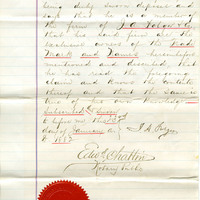 being duly sworn deposes and
says that he is a member of
the firm of J. A. Folger & Co
that his said firm are the
exclusive owners of the Trade
Mark and Name hereinbefore
mentioned and described, that
he has read the foregoing
claim and knows the contents
thereof and that the same is
true of his own knowledge
Subscribed & Sworn
to before me this
day of January
J. A. Folger
Edwd Chattin
Notary Public